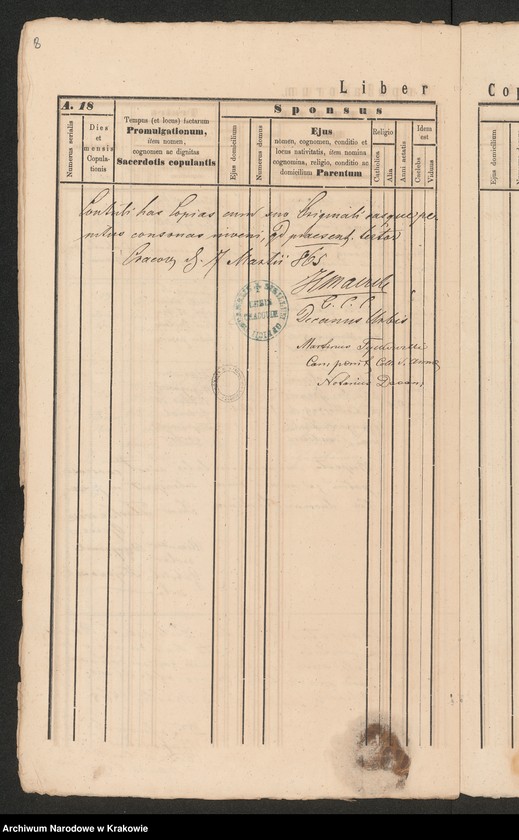 8
Liber
Cop
A. 18
Sponsus
Numerus serialis
Dies et mensis Copulationis
Tempus (et locus) factarum
Promulgationum,
item nomen,
cognomen ac dignitas
Sacerdotis copulantis
Ejus domicilium
Numerus domus
Ejus
nomen, cognomen, conditio et
locus nativitatis, item nomina
cognomina, religio, conditio ac
domicilium Parentum
Religio
Catholica
Alia
Anni aetatis
Idem
est
Caelebs
Viduus
Ejus domicilium
Contuli has Copias cum suo Originali easque pe-
nitus consonas inveni, qd praesent. testor
Cracov. d. 7 Martii 865
C. C. C.
Decanus Urbis
Martinus
Can. Colle. S. Annae
Notarius Decan.
Archiwum Narodowe w Krakowie